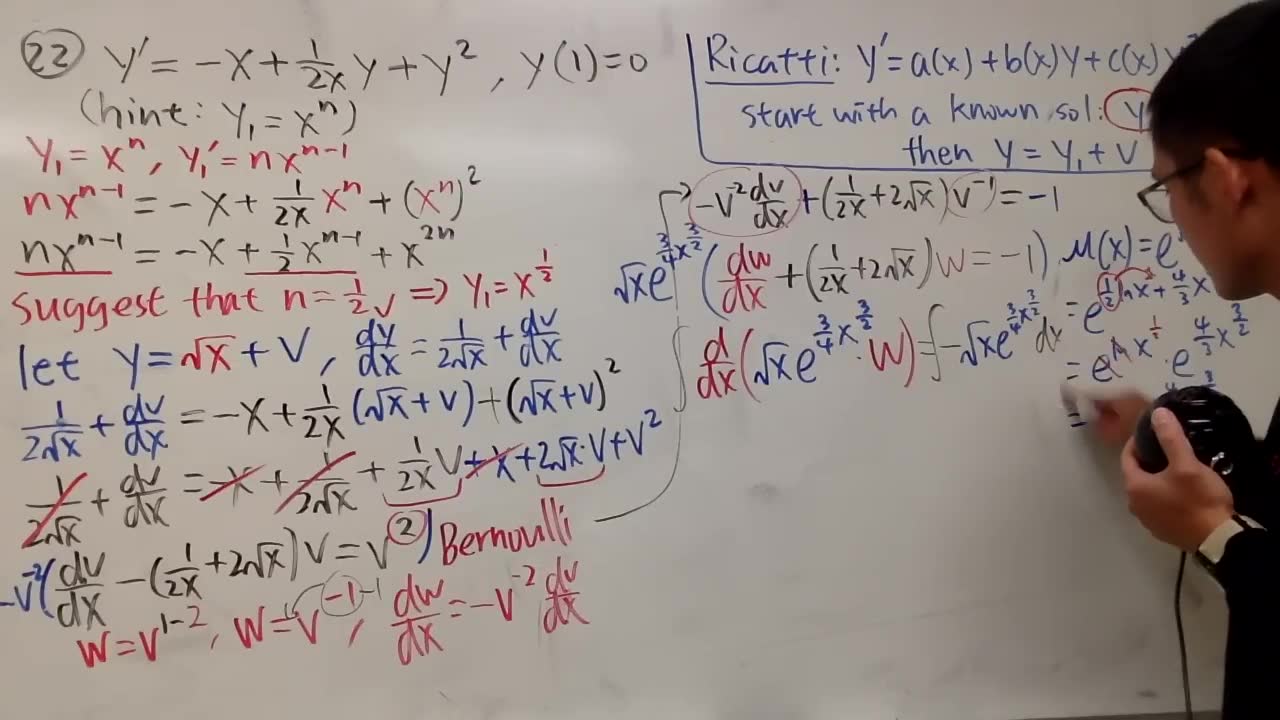 22 y' = -x + 1/2x y + y², y(1)=0
(hint: y₁ = xⁿ)
y₁ = xⁿ, y₁' = nxⁿ⁻¹
nxⁿ⁻¹ = -x + 1/2x xⁿ + (xⁿ)²
nxⁿ⁻¹ = -x + 1/2 xⁿ⁻¹ + x²ⁿ
suggest that n = 1/2 ✓ ⇒ y₁ = x^(1/2)
let y = √x + v, dy/dx = 1/(2√x) + dv/dx
1/(2√x) + dv/dx = -x + 1/2x (√x + v) + (√x + v)²
1/(2√x) + dv/dx = -x + 1/(2√x) + 1/2x v + x + 2√x·v + v²
-v⁻²(dv/dx - (1/2x + 2√x)v = v²) Bernoulli
w = v¹⁻², w = v⁻¹, dw/dx = -v⁻² dv/dx
Ricatti: y' = a(x) + b(x)y + c(x)
start with a known sol: y
then y = y₁ + v
-v⁻² dv/dx + (1/2x + 2√x)v⁻¹ = -1
√x e^(3/4 x^(3/2)) (dw/dx + (1/2x + 2√x)w = -1)
d/dx(√x e^(3/4 x^(3/2)) · w) = ∫ -√x e^(3/4 x^(3/2)) dx
μ(x) = e
= e^(1/2 ln x + 4/3 x
= e^(ln x^(1/2)) · e^(4/3 x^(3/2))
=